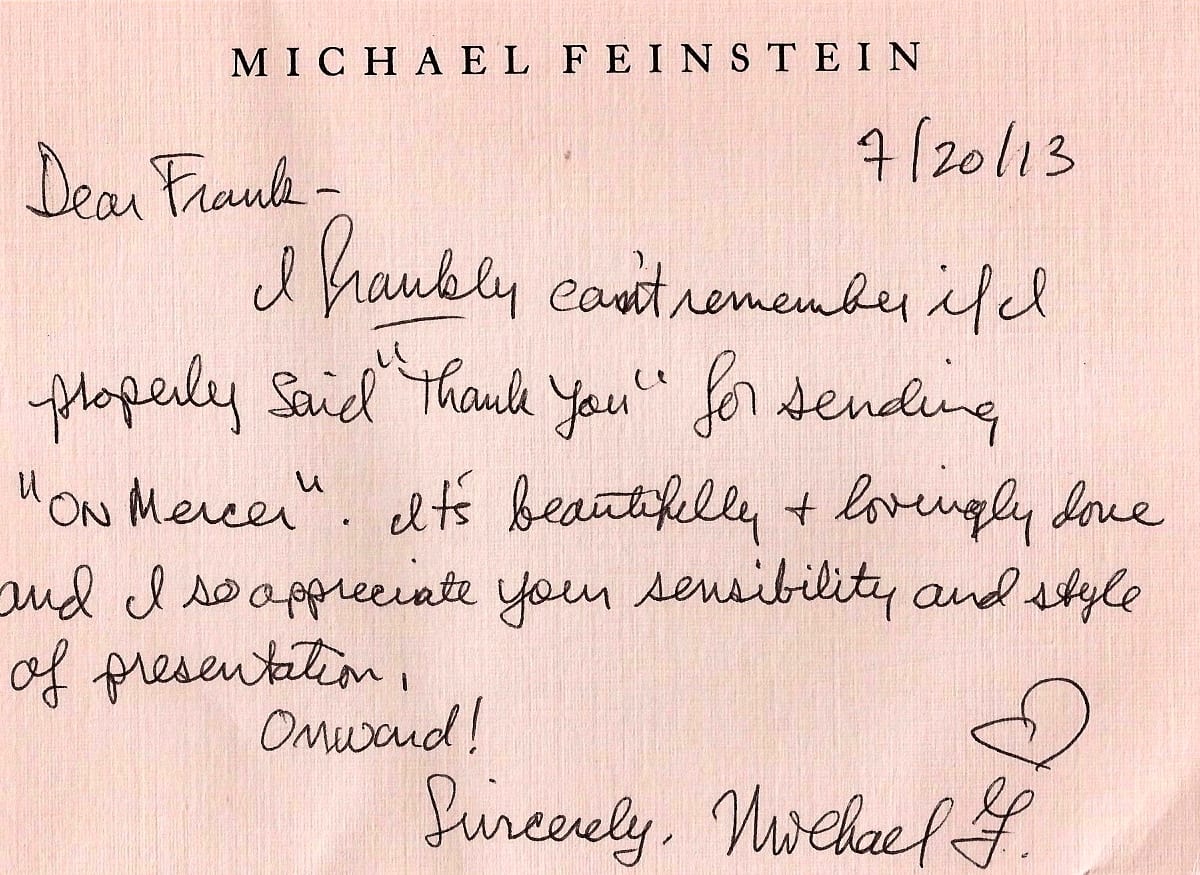 MICHAEL FEINSTEIN
7/20/13
Dear Frank-
I frankly can't remember if I
properly said "Thank You" for sending
"ON Mercer". It's beautifully + lovingly done
and I so appreciate your sensibility and style
of presentation.
Onward!
Sincerely, Michael F.